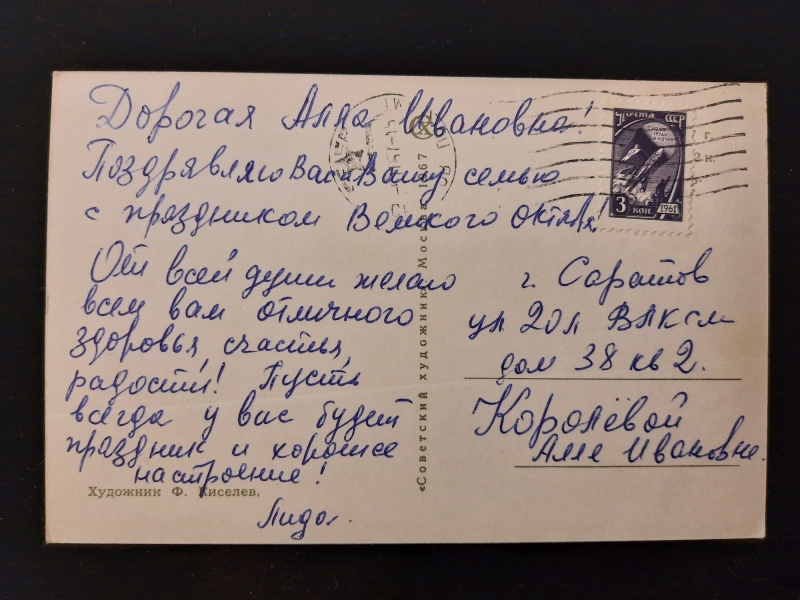 Дорогая Алла Ивановна!
Поздравляю Вас и Вашу семью
с праздником Великого Октября!
От всей души желаю
всем вам отличного
здоровья, счастья,
радости! Пусть
всегда у вас будет
праздник и хорошее
настроение!
Лида.
Художник Ф. Киселев.
«Советский художник» Москва 1967
ПОЧТА СССР
3 КОП
1961
г.
2 к.
г. Саратов
ул 20 л ВЛКСМ
дом 38 кв 2.
Королёвой
Алле Ивановне.